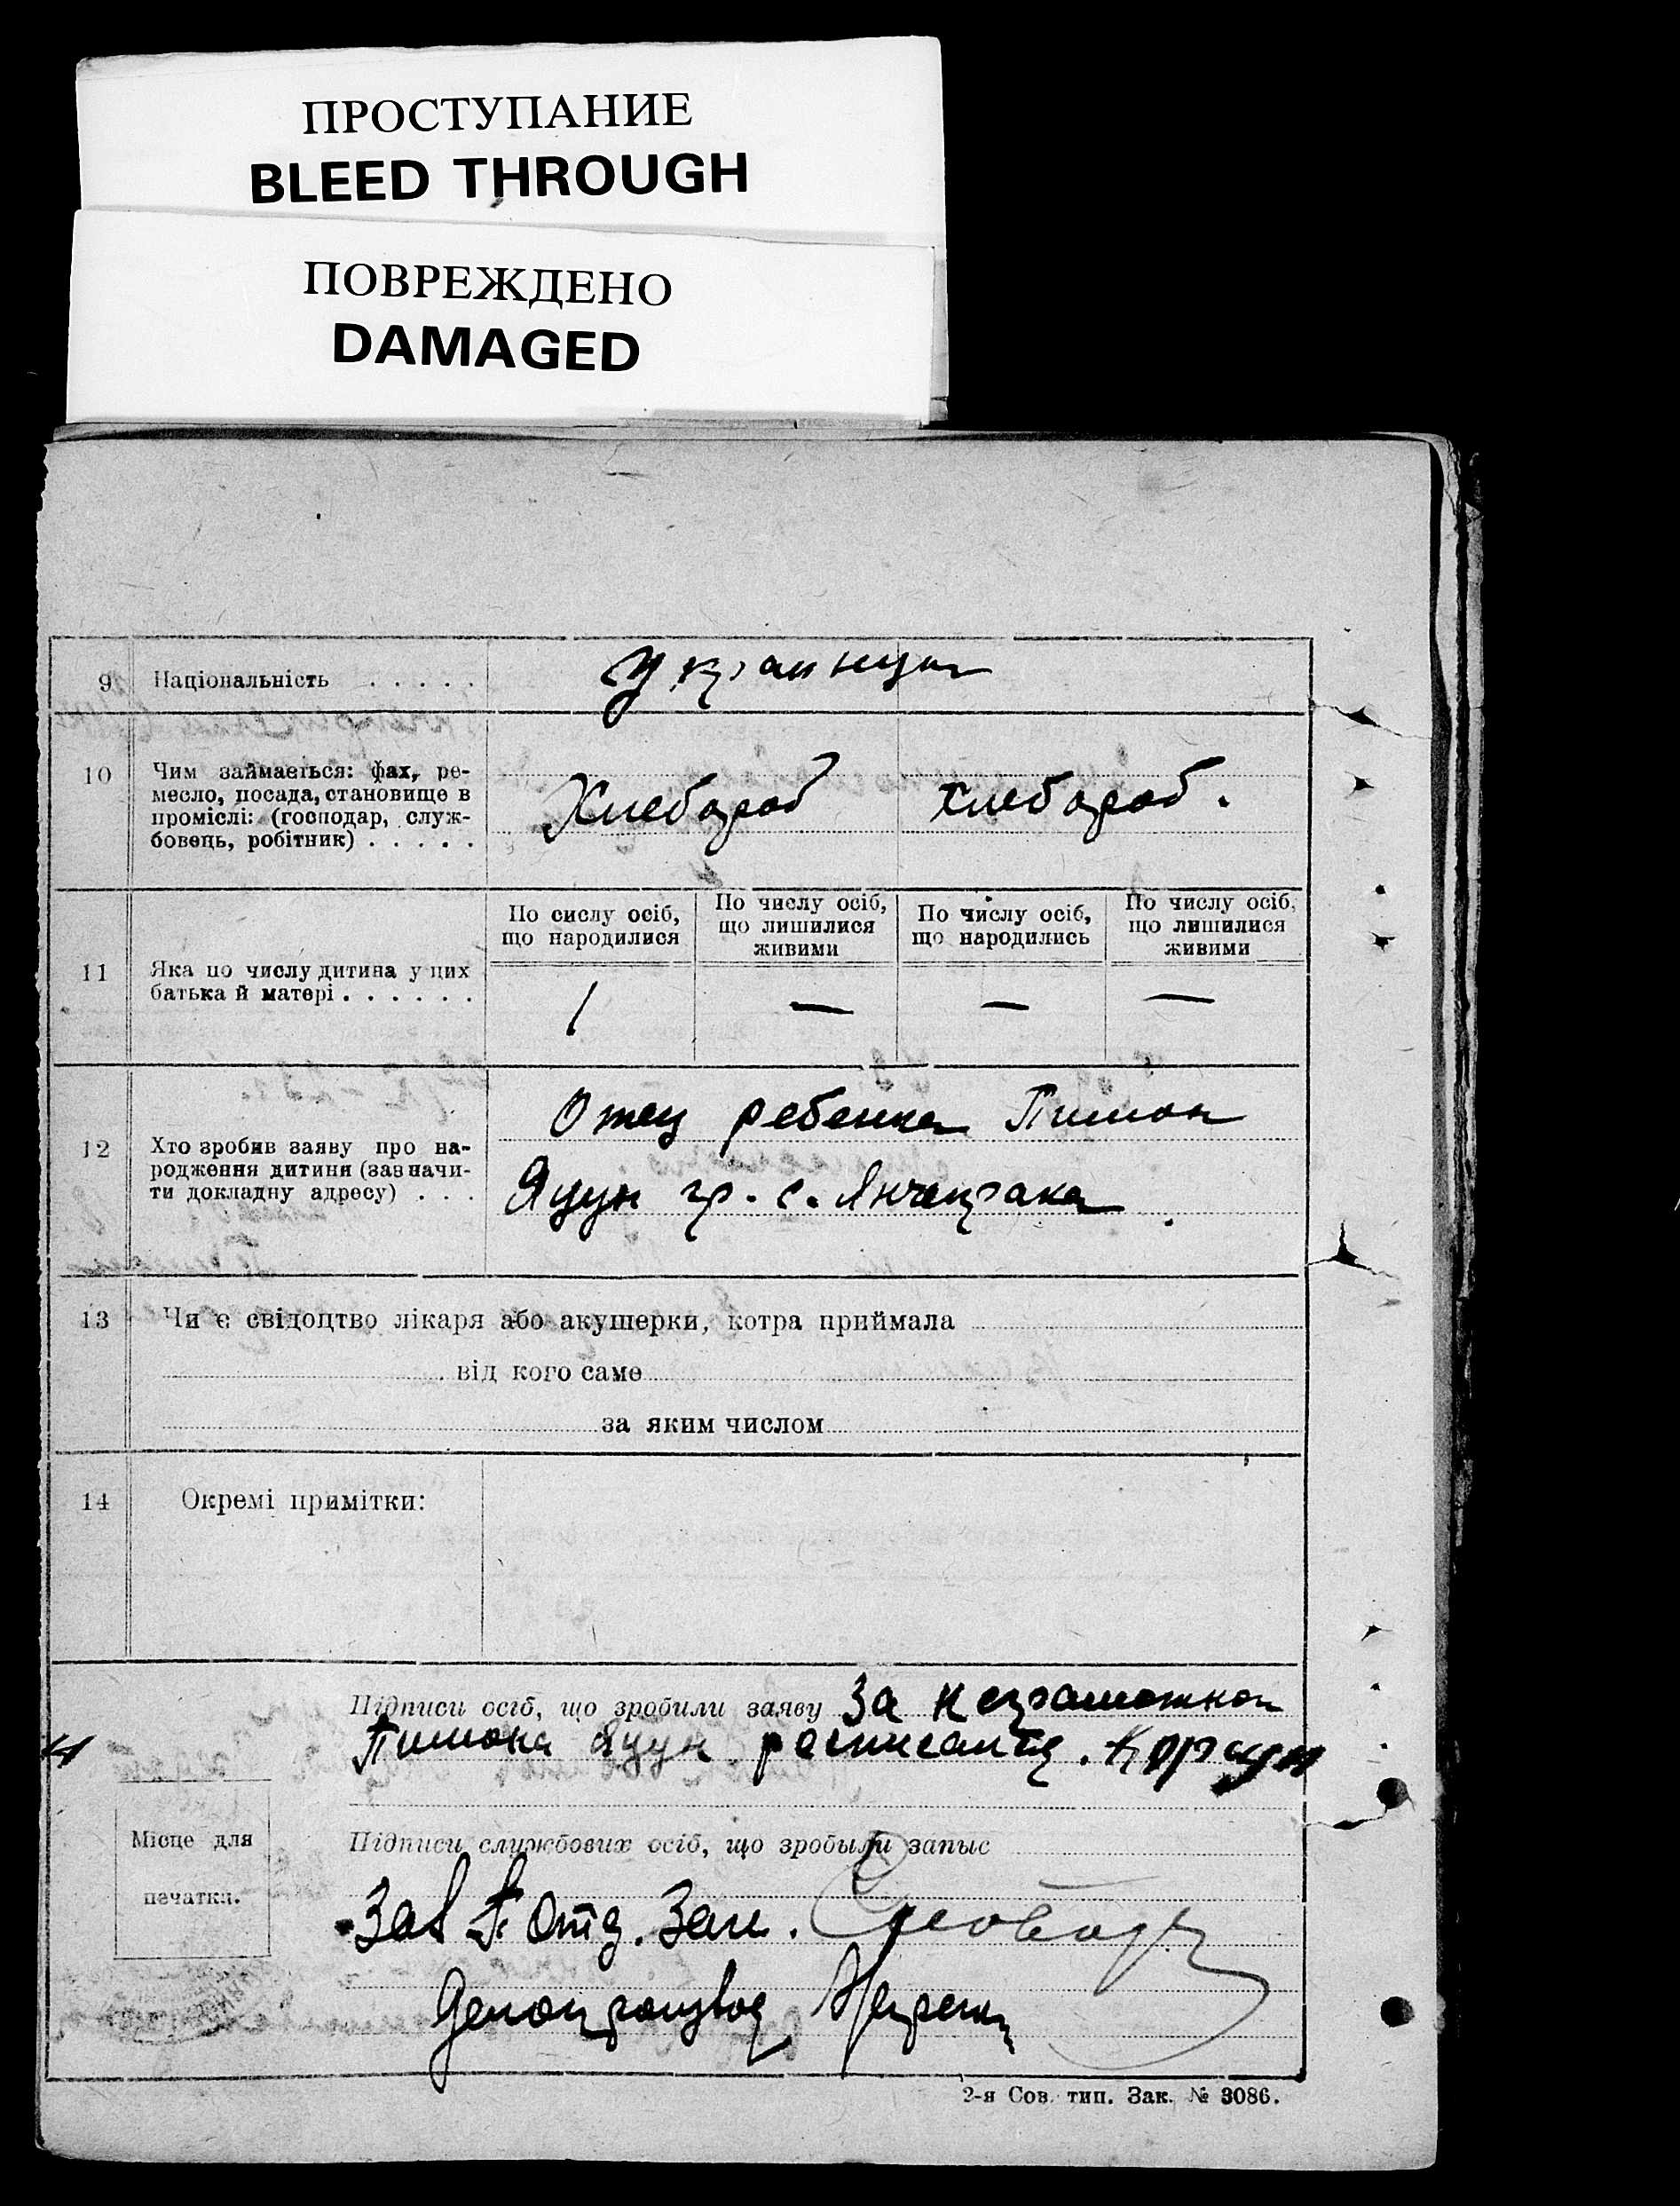 ПРОСТУПАНИЕ
BLEED THROUGH
ПОВРЕЖДЕНО
DAMAGED
9 Національність . . . . . Украинцы
10 Чим займається: фах, ре-
месло, посада, становище в
проміслі: (господар, служ-
бовець, робітник) . . . . .
Хлебороб хлебороб.
По сислу осіб,
що народилися
По числу осіб,
що лишилися
живими
По числу осіб,
що народились
По числу осіб,
що лишилися
живими
11 Яка по числу дитина у цих
батька й матері . . . . . .
1 — — —
12 Хто зробив заяву про на-
родження дитини (зазначи-
ти докладну адресу) . . .
Отец ребенка Пимон
Яцун гр. с. Янчекрака
13 Чи є свідоцтво лікаря або акушерки, котра приймала
від кого саме
за яким числом
14 Окремі примітки:
Підписи осіб, що зробили заяву За неграмотного
Пимона Яцун расписался. Коржун
Місце для
печатки.
Підписи службових осіб, що зробыли запыс
Зав Отд. Зап.
Делопроизвод
2-я Сов. тип. Зак. № 3086.